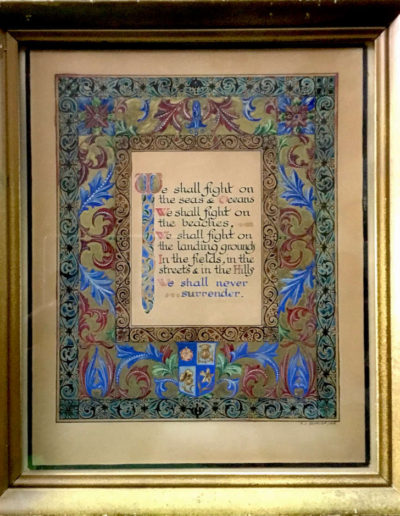 We shall fight on
the seas & Oceans
We shall fight on
the beaches,
We shall fight on
the landing grounds
In the fields, in the
streets & in the Hills
We shall never
surrender.